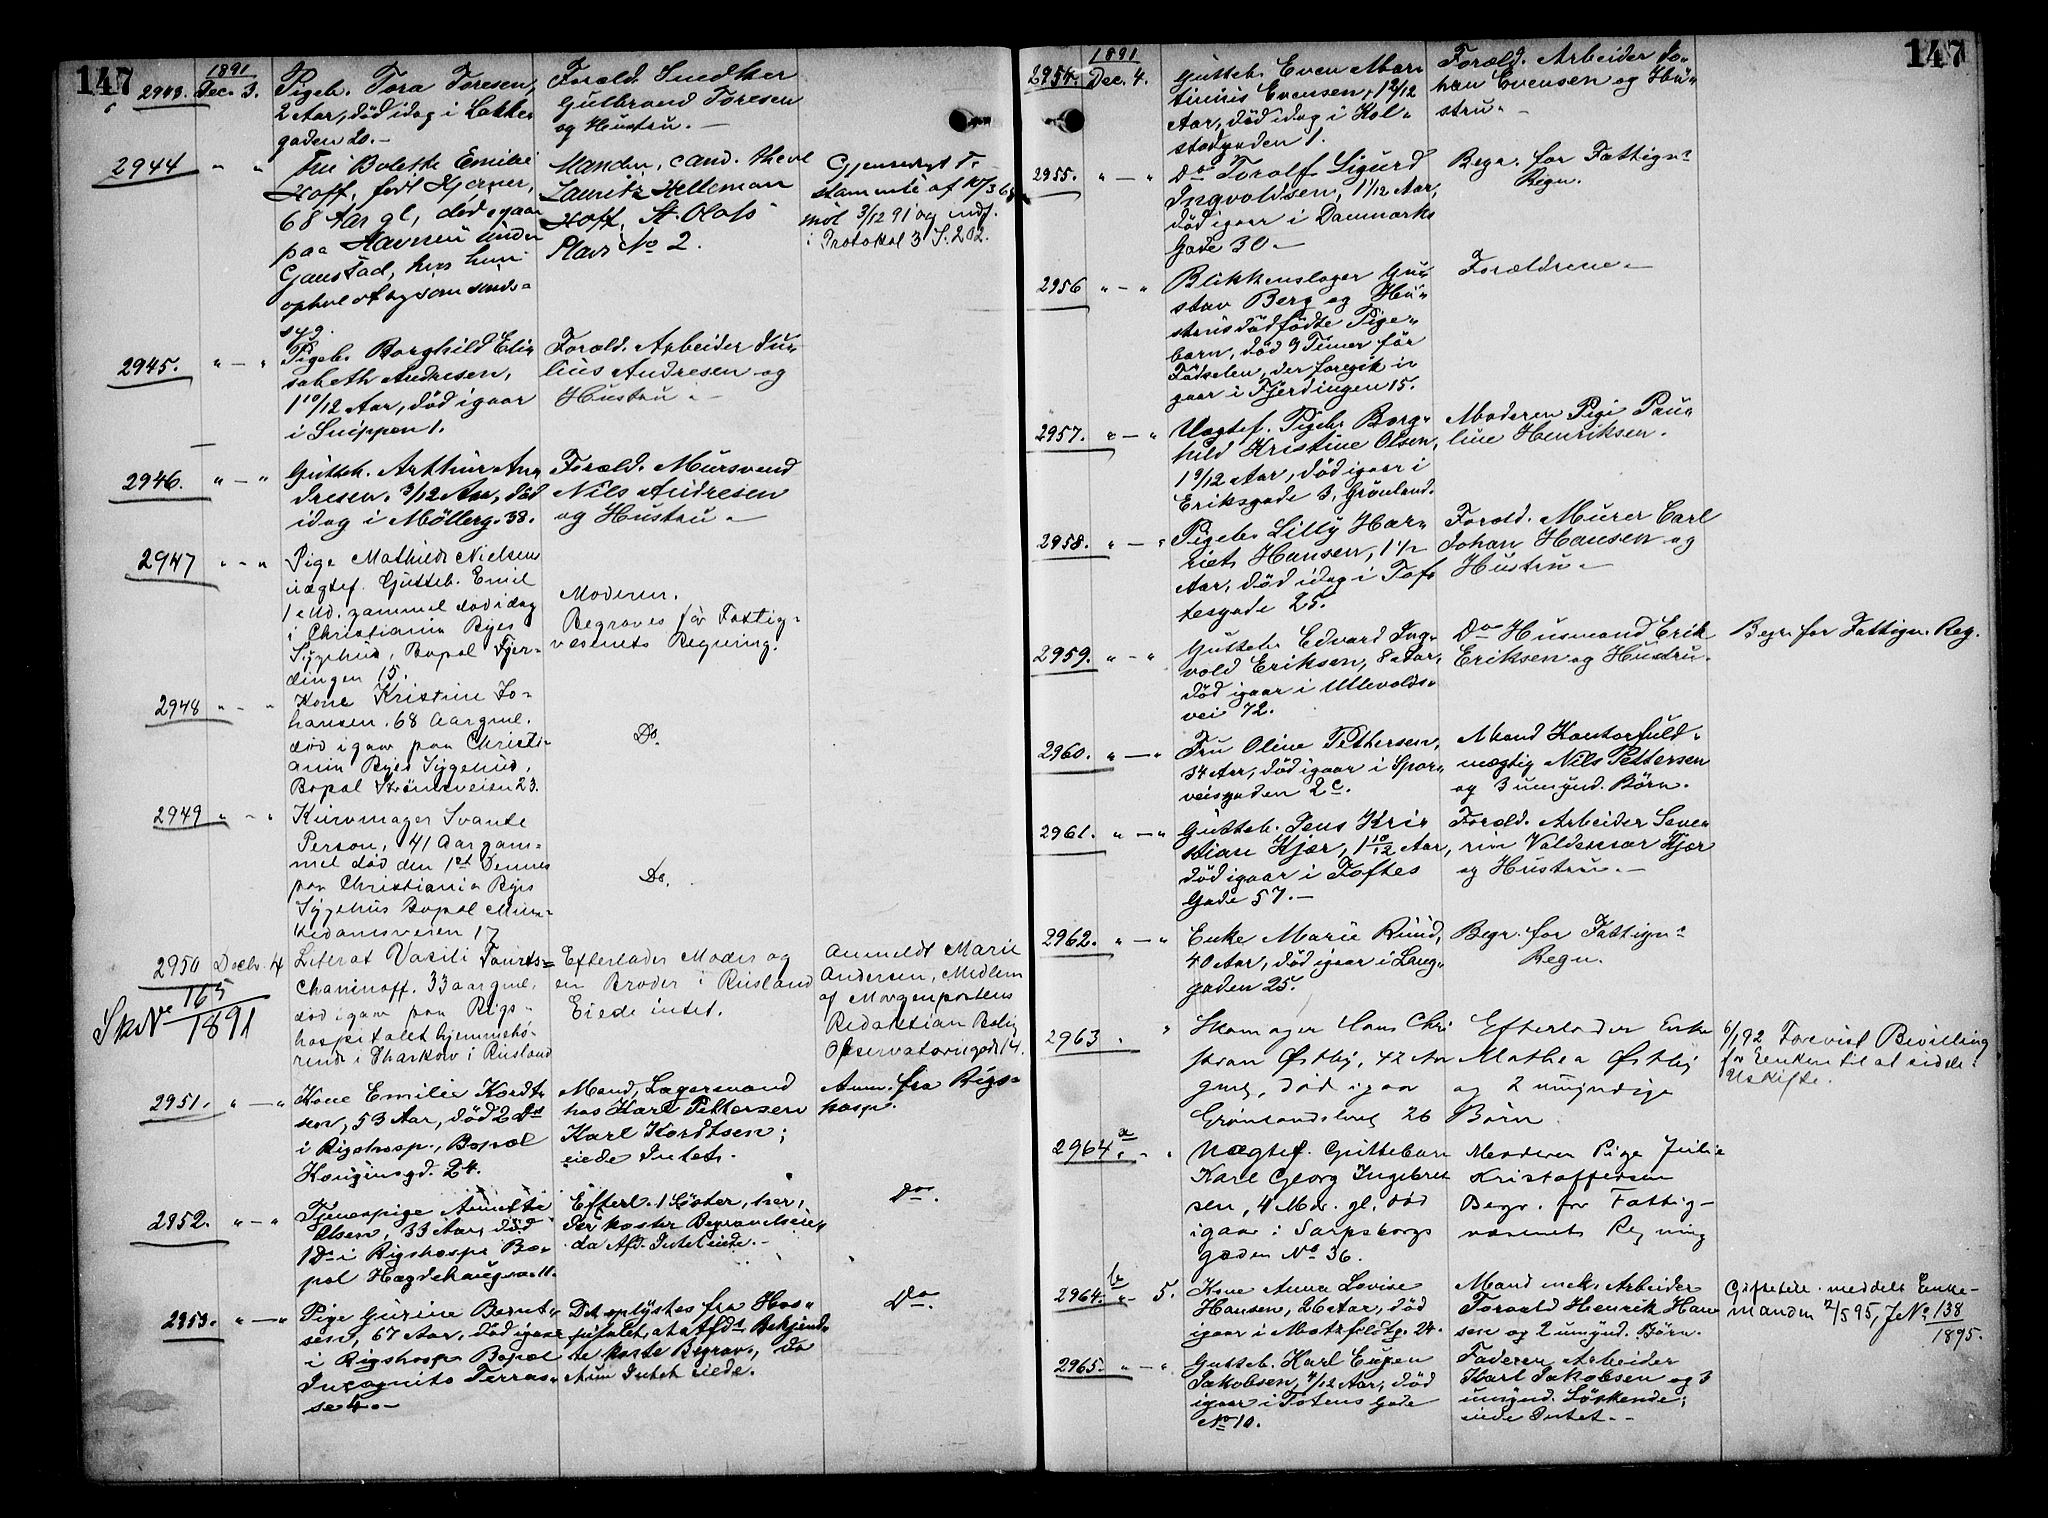 147
1891
2943. Dec. 3. Pigeb. Tora Toresen,
2 Aar, død idag i Lakke-
gaden 20.-
Foræld. Snedker
Gulbrand Toresen
og Hustru.-
2944 " " Fru Bolette Emilie
Hoff, født Kjerner,
68 Aar gl, død igaar
paa Havnen under
Gaustad, hvor hun
opholdt sig som sinds-
syg.
Manden, cand. theol
Lauritz Helleman
Hoff, St. Olafs
Plads No 2.
Gjensidigt Te-
stamente af
3/12 91 og indf.
i Protokol 3 S. 202.
2945. " - " Pigeb. Borghild Eli-
sabeth Andresen,
1 10/12 Aar, død igaar
i Snippen 1.
Foræld. Arbeider Ju-
lius Andresen og
Hustru.-
2946. " - " Gutteb. Arthur An-
dresen, 3/12 Aar, død
idag i Møllerg. 38.
Foræld. Mursvend
Nils Andresen
og Hustru.-
2947 " - " Pige Mathilde Nielsens
uægtef. Gutteb. Emil
1 Md. gammel død idag
i Christiania Byes
Sygehus, Bopal Fjer-
dingen 15.
Moderen.
Begraves for Fattig-
væsenets Regning.
2948 " - " Kone Kristine Jo-
hansen. 68 Aar gml.
død igaar paa Christi-
ania Byes Sygehus,
Bopal Strømsveien 23.
Do.
2949 " - " Kurvmager Svante
Person, 41 Aar gam-
mel død den 1ste Dennes
paa Christiania Byes
Sygehus Bopal Mun-
kedamsveien 17
Do.
2950 Decbr. 4 Literat Vasili
33 aar gml.
død igaar paa Rigs-
hospitalet hjemmehø-
rende i Kharkow i Rusland
Efterlader Moder og
en Broder i Rusland
Eiede intet.
Anmeldt Marie
Andersen, Medlem
af Morgenpostens
Redaktion Bolig
Observatoriegade 14.
165
1891
2951. " - " Kone Emilie Kordt-
sen, 53 Aar, død 2 Ds
i Rigshosp., Bopæl
Kongensgd. 24.
Mand, Lagermand
hos Karl Pettersen
Karl Kordtsen;
eiede Intet.
Anm. fra Rigs-
hosp.
2952. " - " Tjenespige Annette
Olsen, 33 Aar, død
1 Ds i Rigshosp. Bo-
pæl Hægdehaugsv. 11.
Efterl. 1 Søster, her,
der koster Begravelsen,
da Afd. Intet eiede.-
Do.
2953. " - " Pige Gurine Bernt-
sen, 67 Aar, død igaar
i Rigshosp. Bopæl
Incognito Terras-
se 4.-
Det oplystes fra Hos-
pitalet, at Afds Bekjend-
te koste Begrav., da
Intet eiede.
Do.
147
1891
2954. Dec. 4. Gutteb. Even Mar-
tinius Evensen, 1 2/12
Aar, død idag i Kol-
stadgaden 1.
Foræld. Arbeider Jo-
han Evensen og Hu-
stru.-
2955. " - " Do Toralf Sigurd
Ingvoldsen, 1 1/12 Aar,
død igaar i Danmarks
Gade 30.-
Begr. for Fattigvs
Regn.
2956 " - " Blikkenslager Gu-
stav Berg og Hu-
strus dødfødte Pige-
barn, død 9 Timer før
Fødselen, der foregik i-
gaar i Fjerdingen 15.
Forældrene.-
2957. " - " Uægtef. Pigeb. Borg-
hild Kristine Olsen,
1 9/12 Aar, død igaar i
Eriksgade 3, Grønland.
Moderen Pige Pau-
line Henriksen.
2958. " - " Pigeb. Lilly Har-
riet Hansen, 1 1/2
Aar, død idag i Tof-
tesgade 25.
Foræld. Murer Carl
Johan Hansen og
Hustru.-
2959. " - " Gutteb. Edvard Ing-
vold Eriksen, 8 Aar,
død igaar i Ullevolds-
vei 72.
Do Husmand Erik
Eriksen og Hustru.
Begr. for Fattigv. Reg.
2960. " - " Fru Oline Pettersen,
54 Aar, død igaar i Spor-
veisgaden 2c.
Mand Kontorfuld-
mægtig Nils Pettersen
og 3 umynd. Børn.
2961. " - " Gutteb. Jens Kri-
stian Kjær, 1 10/12 Aar,
død igaar i Toftes
Gade 57.-
Foræld. Arbeider Seve-
rin Valdemar Kjær
og Hustru.-
2962. " - " Enke Marie Ruud,
40 Aar, død igaar i Lang-
gaden 25.
Begr. for Fattigvs
Regn.
2963 " Skomager Hans Chri-
stian Østby, 42 Aar
gml, død igaar
Grønlandsleret 26
Efterlader Enke
Mathea Østby
og 2 umyndige
Børn.
6/1 92 Forevist Bevilling
for Enken til at sidde i
Uskifte.
2964 a. " Uægtef. Guttebarn
Karl Georg Ingebret-
sen, 4 Mdr. gl, død
igaar i Sarpsborgs-
gaden No 36.
Moderen Pige Julie
Kristoffersen
Begr. for Fattig-
væsenets Regning
2964. b " 5. Kone Anna Lovise
Hansen, 26 Aar, død
igaar i Motzfeldtsg. 24.
Mand mek. Arbeider
Torvald Henrik Han-
sen og 2 umynd. Børn.
meddelt Enke-
manden 2/5 95, J No 138
1895.
2965. " - " Gutteb. Karl Eugen
Jakobsen, 4/12 Aar, død
igaar i Totens Gade
No 10.
Faderen Arbeider
Karl Jakobsen og 3
umynd. Søskende;
eiede Intet.-